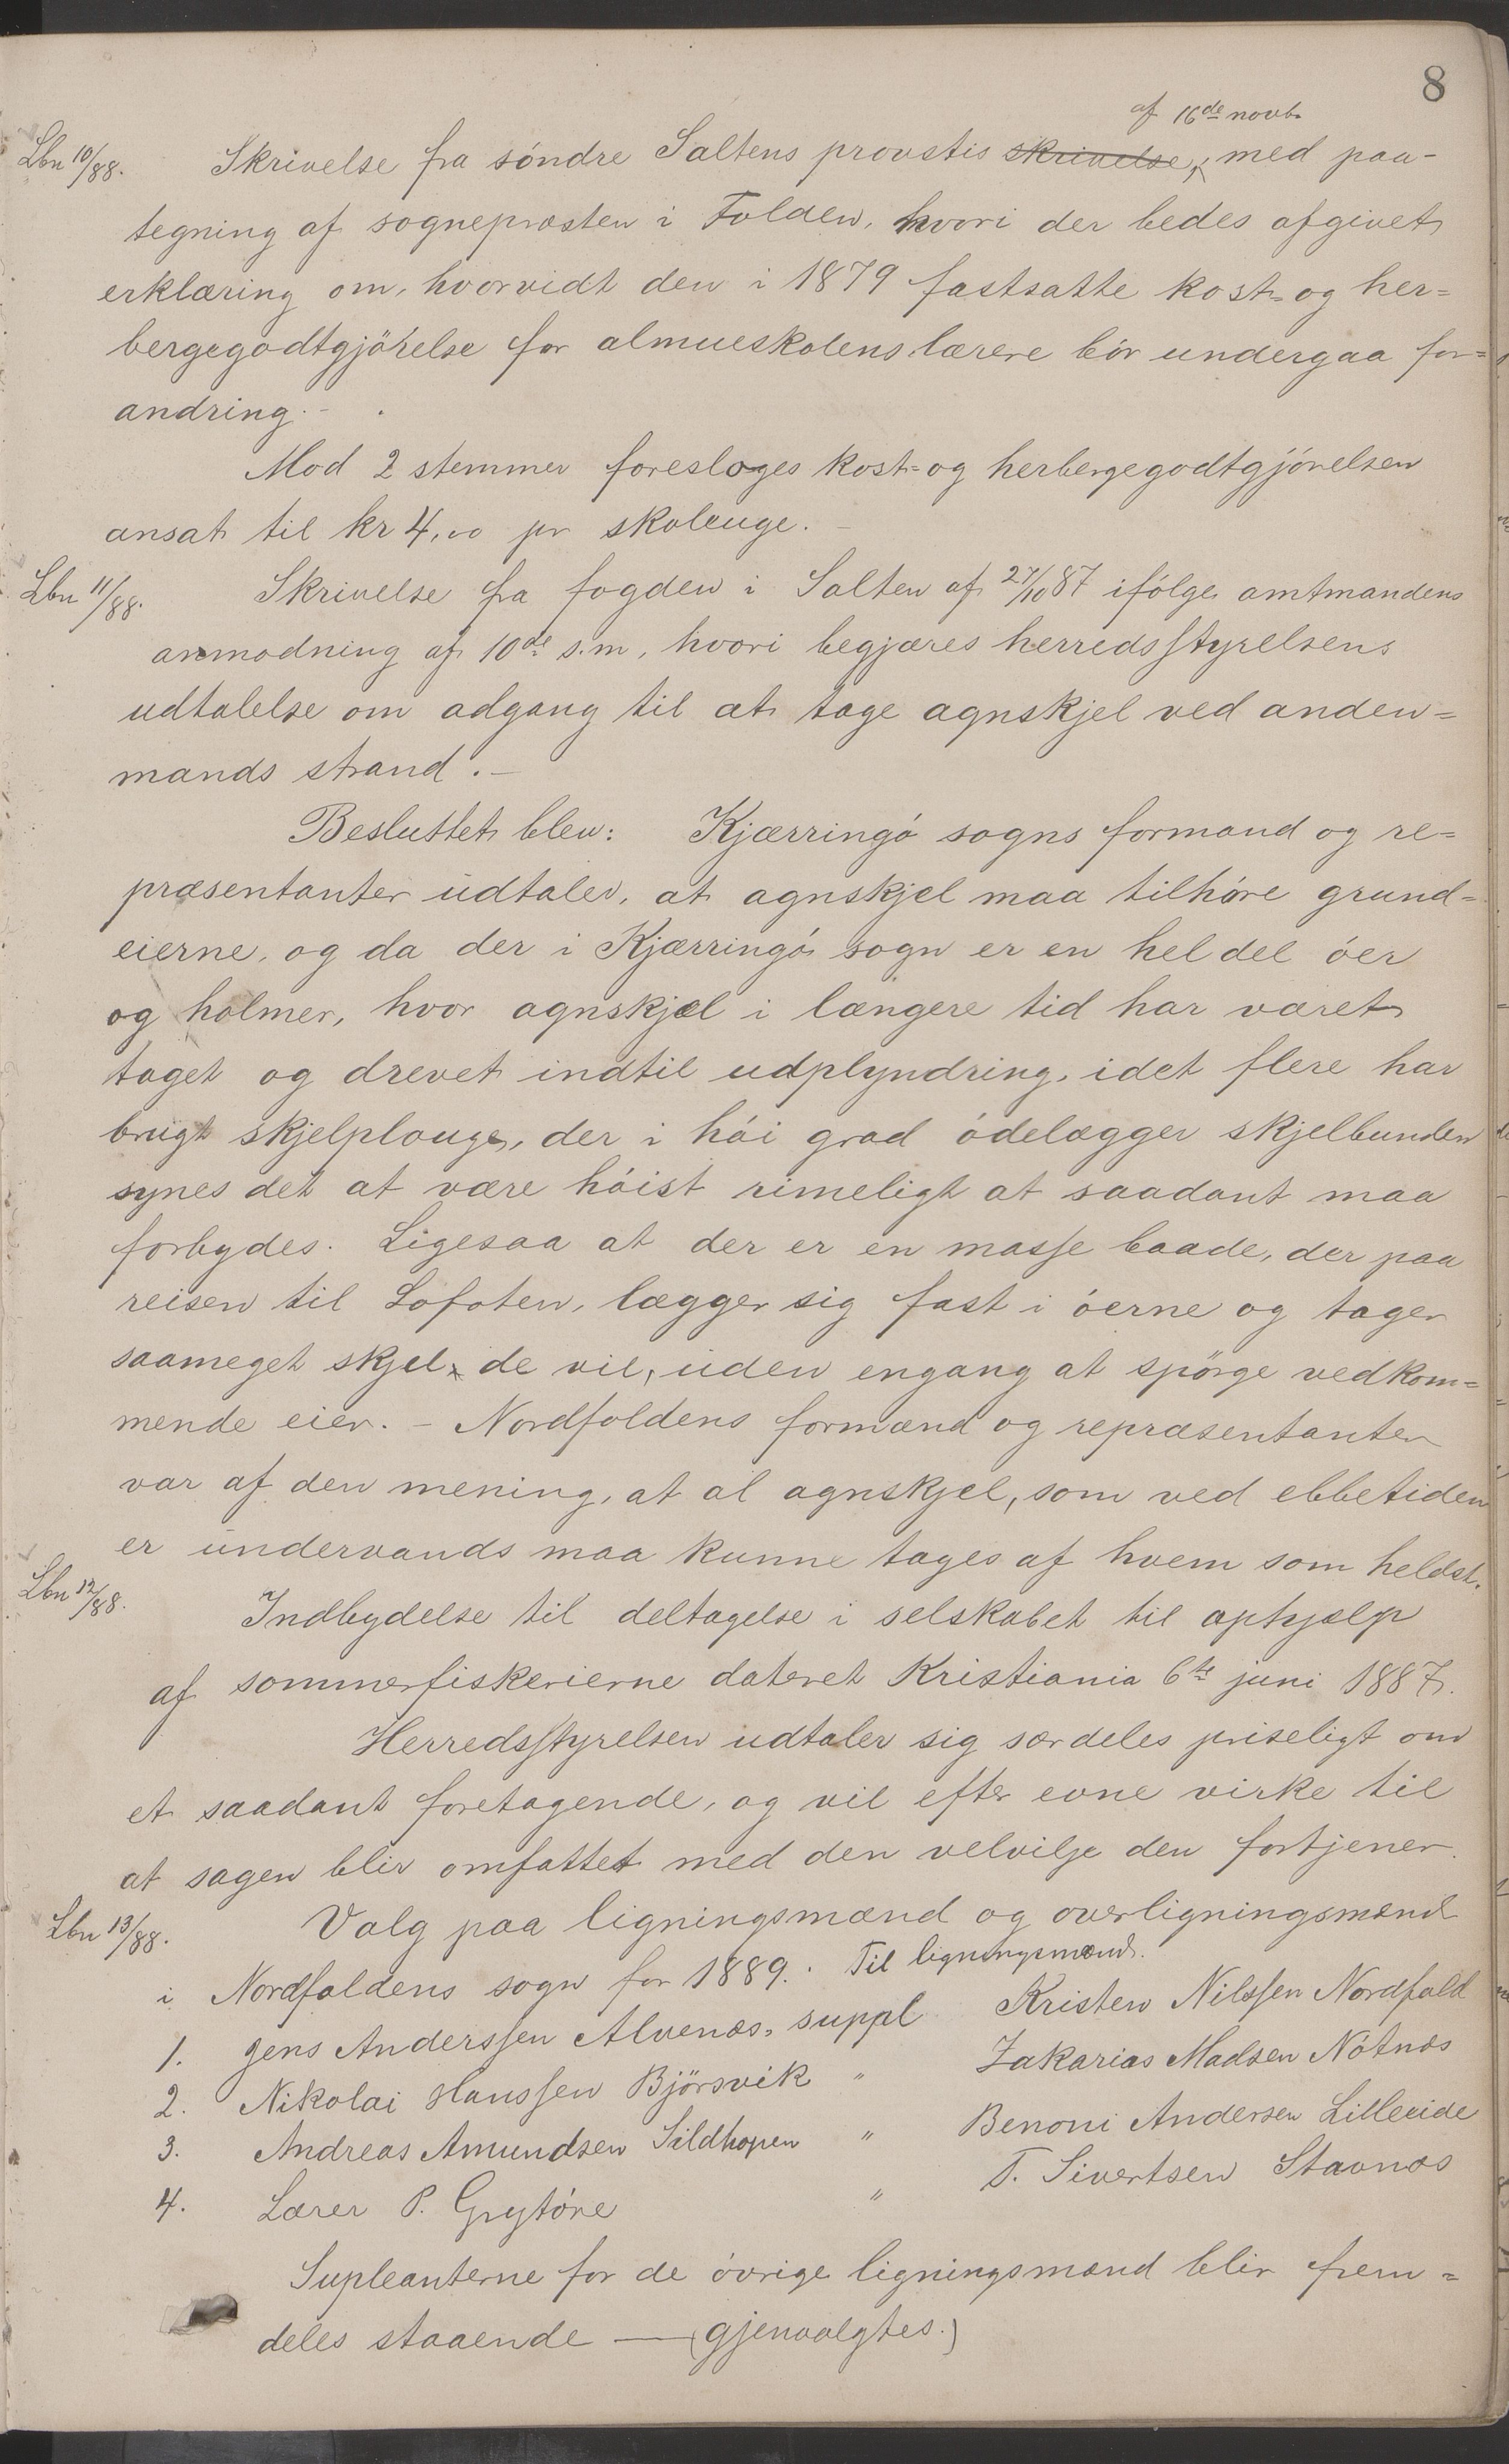 8
af 16de novb.
Lbn 10/88. Skrivelse fra søndre Saltens provstis skrivelse, med paa-
tegning af sognepræsten i Folden, hvori der bedes afgivet
erklæring om, hvorvidt den i 1879 fastsatte kost- og her=
bergegodtgjørelse for almueskolens lærere bør undergaa for=
andring. -
Mod 2 stemmer foresloges kost= og herbergegodtgjørelsen
ansat til kr 4,00 pr skoleuge. -
Lbn 11/88. Skrivelse fra fogden i Salten af 27/10 87 ifølge amtmandens
anmodning af 10de s.m, hvori begjæres herredsstyrelsens
udtalelse om adgang til at tage agnskjel ved anden=
mands strand. -
Besluttet blev: Kjærringø sogns formænd og re=
præsentanter udtaler, at agnskjel maa tilhøre grund=
eierne, og da der i Kjærringø sogn er en hel del øer
og holmer, hvor agnskjæl i længere tid har været
taget og drevet indtil udplyndring, idet flere har
brugt skjelplouge, der i høi grad ødelægger skjelbunden
synes det at være høist rimeligt at saadant maa
forbydes. Ligesaa at der er en masse baade, der paa
reisen til Lofoten, lægger sig fast i øerne og tager
saameget skjel, de vil, uden engang at spørge vedkom=
mende eier. - Nordfoldens formænd og repræsentanter
var af den mening, at al agnskjel, som ved ebbetiden
er undervands maa kunne tages af hvem som heldst.
Lbn 12/88. Indbydelse til deltagelse i selskabet til ophjælp
af sommerfiskerierne dateret Kristiania 6te juni 1887.
Herredsstyrelsen udtaler sig særdeles priseligt om
et saadant foretagende, og vil efter evne virke til
at sagen blir omfattet med den velvilje den fortjener.
Lbn 13/88. Valg paa ligningsmænd og overligningsmænd
i Nordfoldens sogn for 1889. Til ligningsmænd.
1. Jens Anderssen Alvenæs, suppl Kristen Nilssen Nordfold
2. Nikolai Hanssen Bjørsvik " Zakarias Madsen Nøtnæs
3. Andreas Amundsen Sildhopen " Benoni Andersen Lilleeide
4. Lærer P. Grytøre " T. Sivertsen Stavnæs
Supleanterne for de øvrige ligningsmænd blir frem=
deles staaende — (gjenvalgtes.)